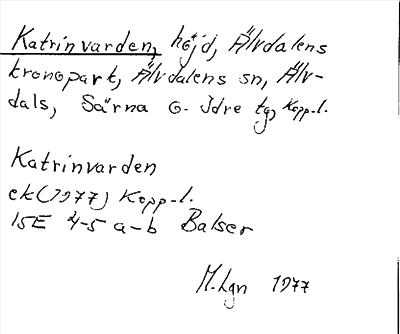 Katrinvarden, höjd, Älvdalens
kronopark, Älvdalens sn, Älv-
dals, Särna o. Idre tg, Kopp-l.
Katrinvarden
ek (1977) Kopp-l.
15E 4-5 a-b Balser
M. Lgn 1977